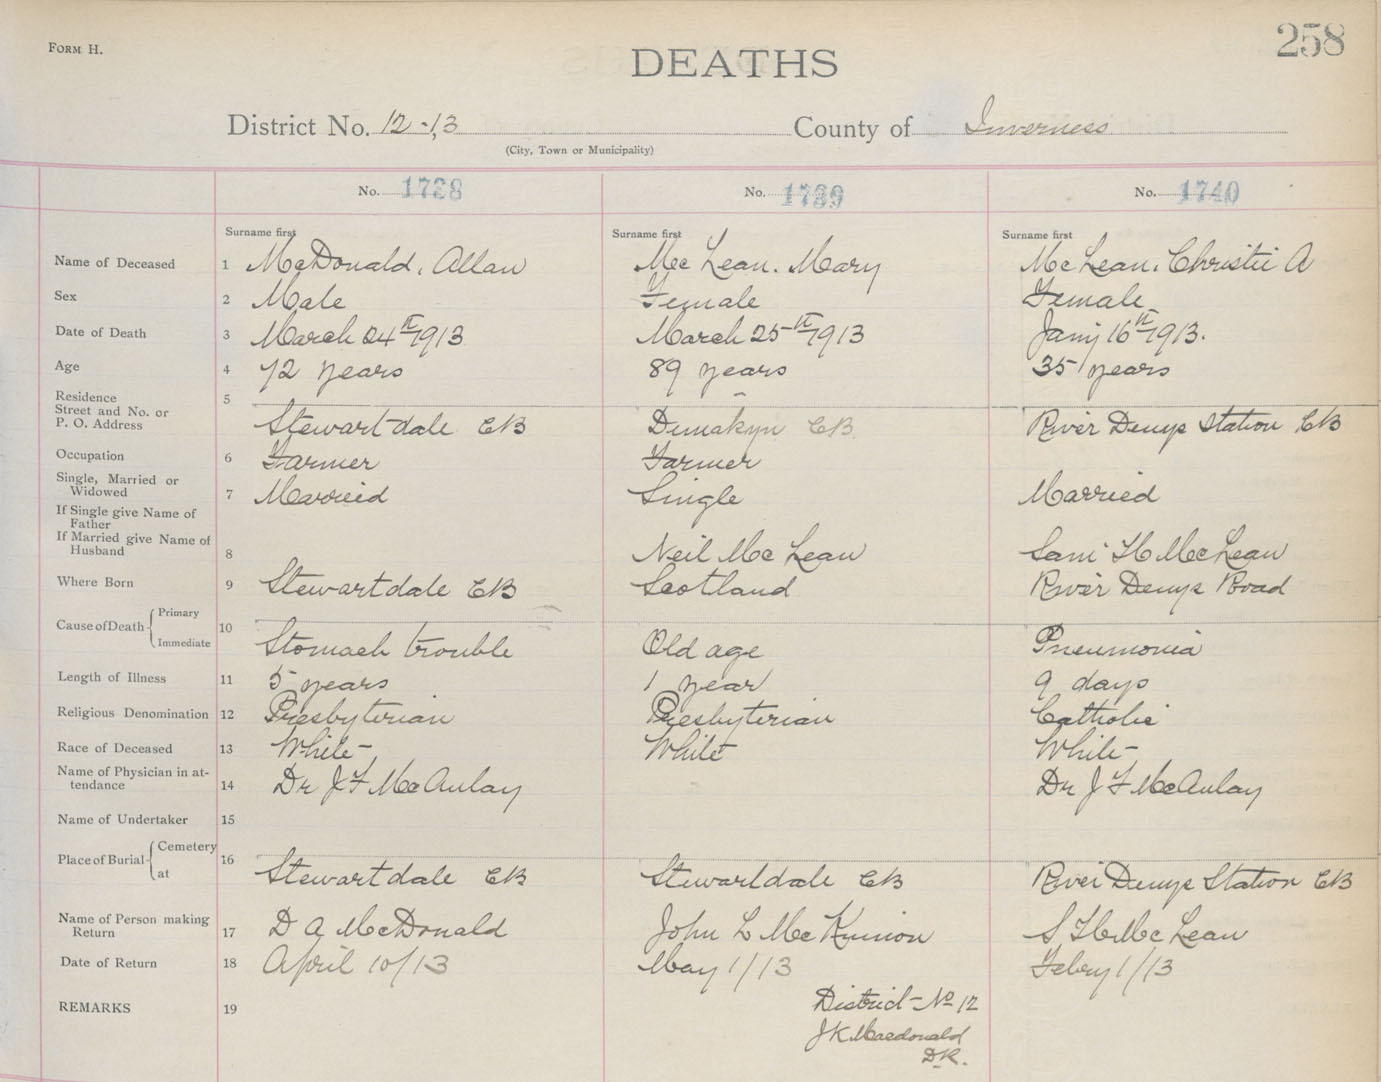 FORM H.
258
DEATHS
District No. 12-13 County of Inverness
(City, Town or Municipality)
No. 1738 No. 1739 No. 1740
Surname first Surname first Surname first
Name of Deceased 1 McDonald, Allan McLean. Mary McLean. Christie A
Sex 2 Male Female Female
Date of Death 3 March 24th 1913 March 25th 1913 Jany 16th 1913.
Age 4 72 years 89 years 35 years
Residence 5
Street and No. or
P. O. Address Stewartdale CB CB River Denys Station CB
Occupation 6 Farmer Farmer
Single, Married or
Widowed 7 Married Single Married
If Single give Name of
Father
If Married give Name of
Husband 8 Neil McLean Sam H McLean
Where Born 9 Stewartdale CB Scotland River Denys Road
Cause of Death Primary
Immediate 10 Stomach trouble Old age Pneumonia
Length of Illness 11 5 years 1 year 9 days
Religious Denomination 12 Presbyterian Presbyterian Catholic
Race of Deceased 13 White White White
Name of Physician in at-
tendance 14 Dr J F McAulay Dr J F McAulay
Name of Undertaker 15
Place of Burial Cemetery
at 16 Stewartdale CB Stewartdale CB River Denys Station CB
Name of Person making
Return 17 D A McDonald John L McKinnon S H McLean
Date of Return 18 April 10/13 May 1/13 Febry 1/13
REMARKS 19 District No 12
J K Macdonald
D.R.